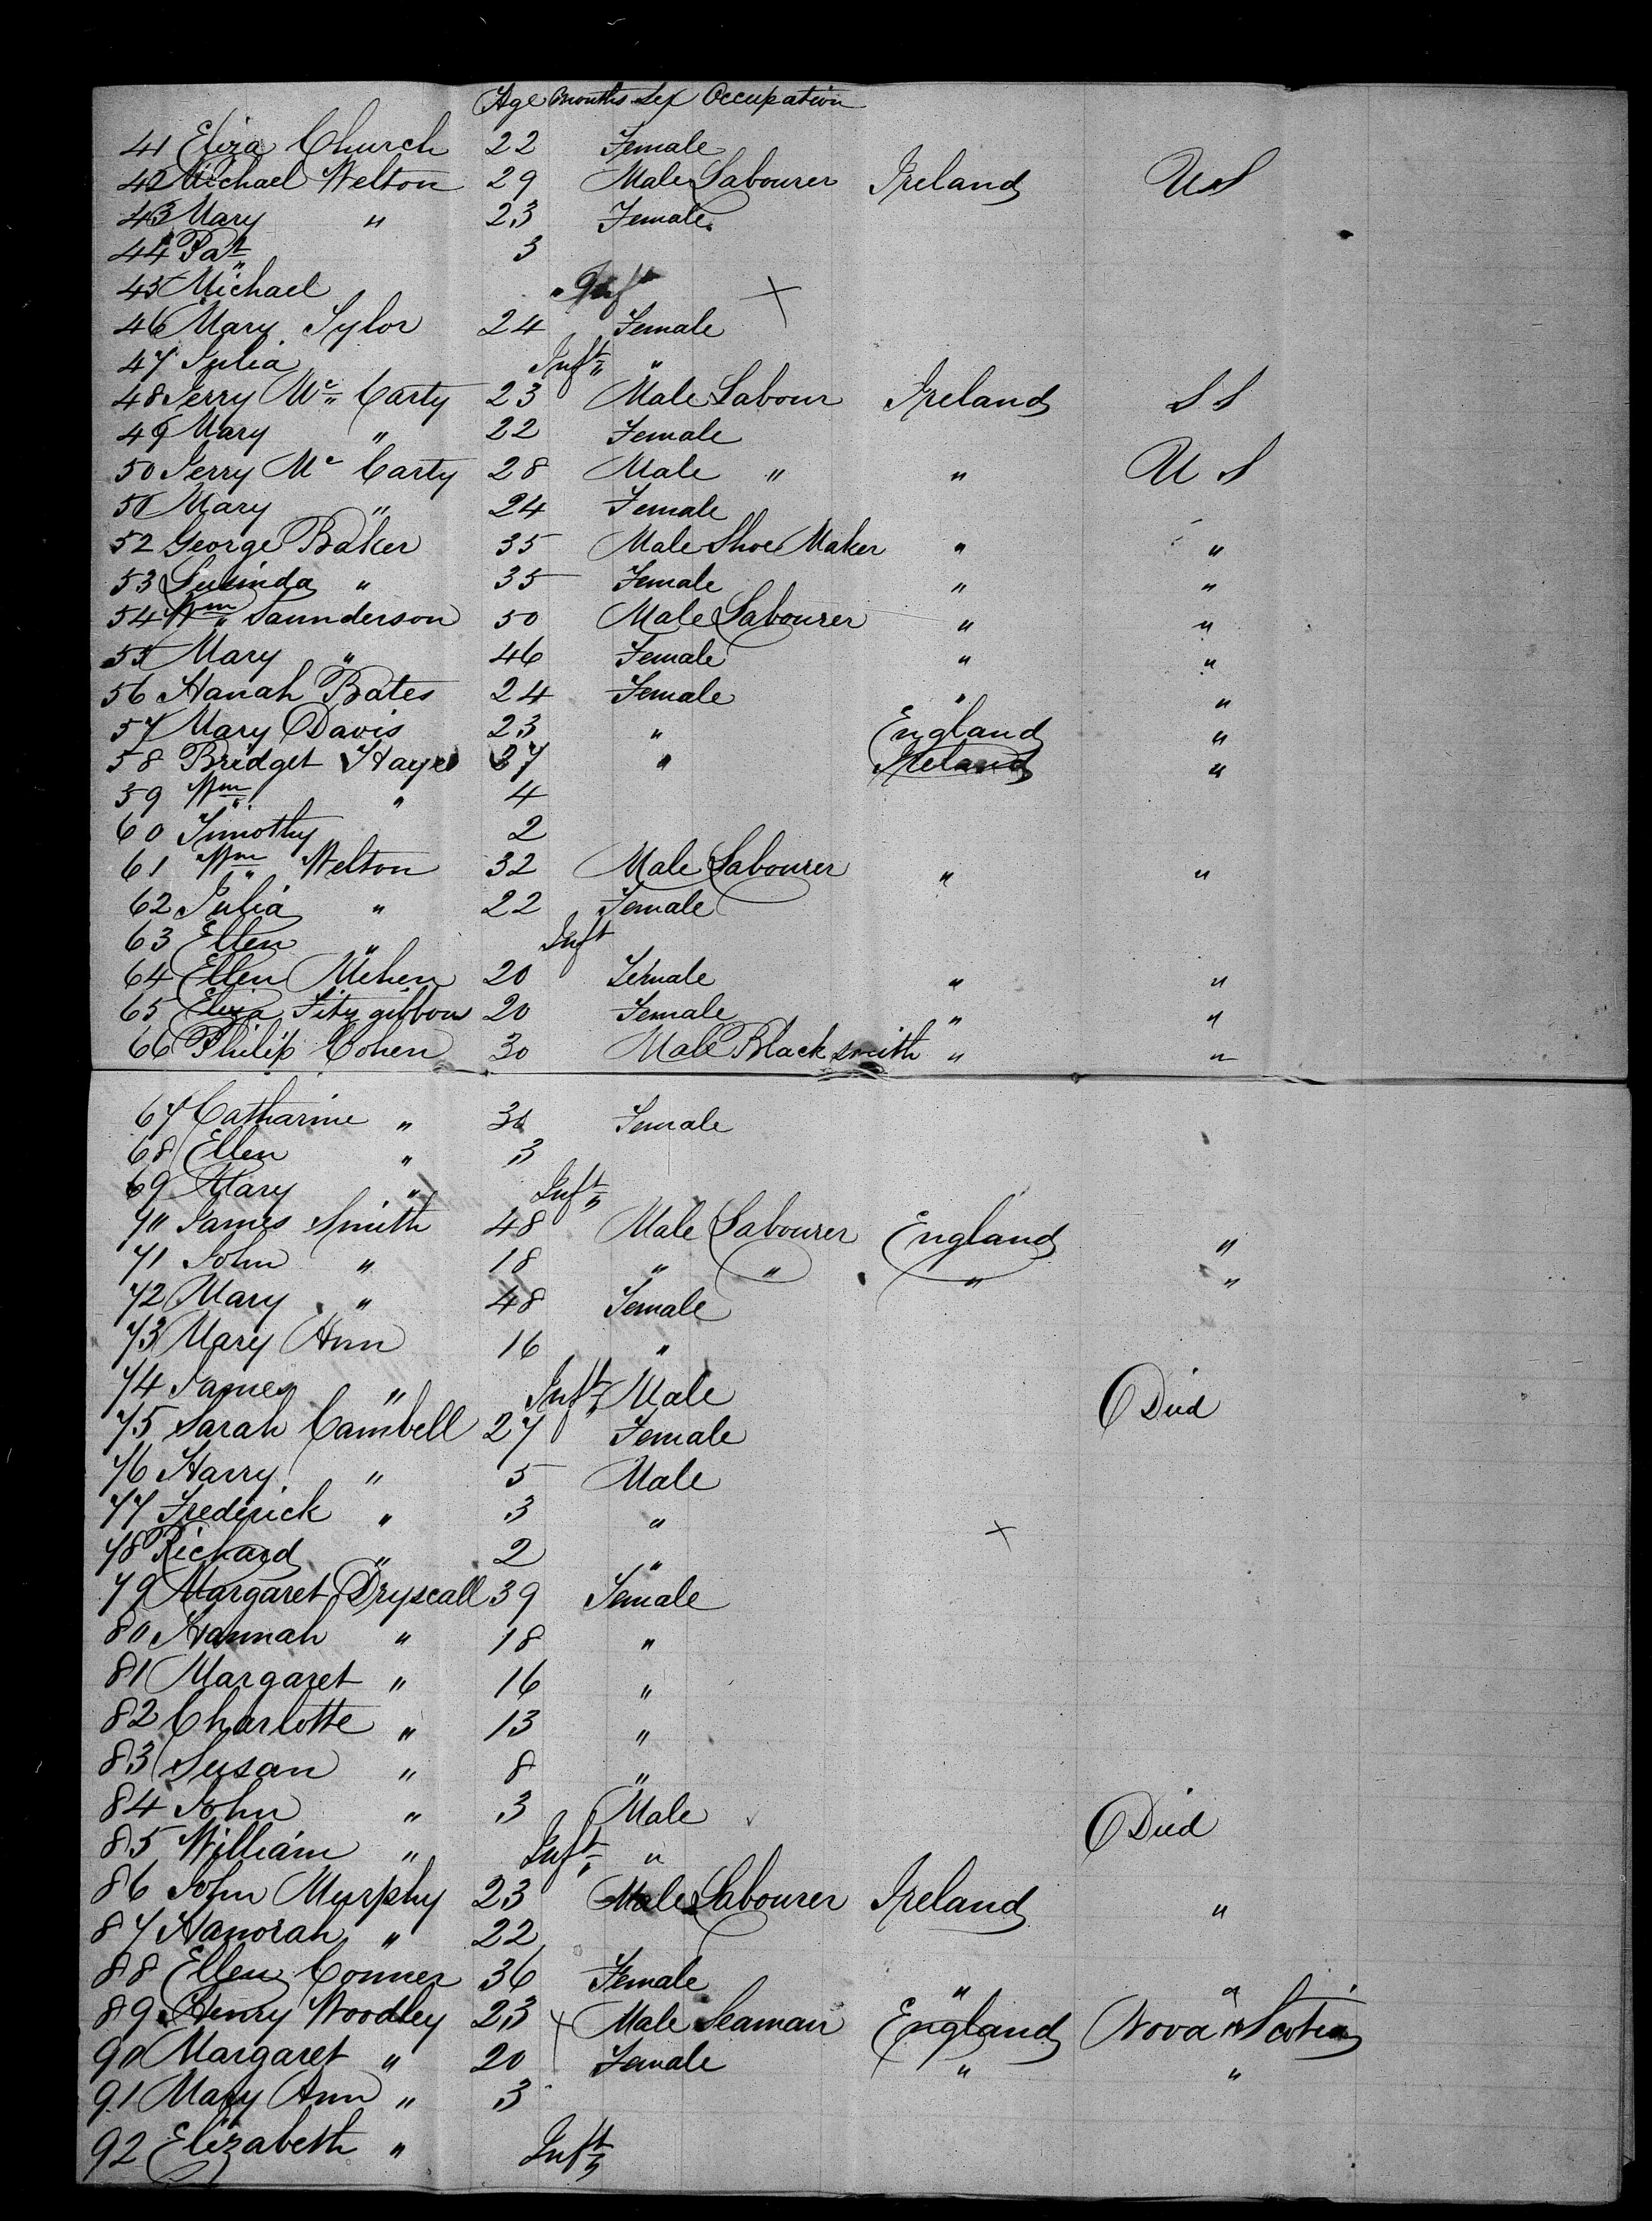 Age months Sex Occupation
41 Eliza Church 22 Female
42 Michael Welton 29 Male Labourer Ireland U S
43 Mary " 23 Female
44 Pat 3
45 Michael " Inft
46 Mary Sylor 24 Female
47 Julia Inft "
48 Jerry Mc Carty 23 Male Labour Ireland S S
49 Mary " 22 Female
50 Jerry Mc Carty 28 Male " " U S
51 Mary " 24 Female
52 George Baker 35 Male Shoe Maker " "
53 Lucinda " 35 Female " "
54 Wm Saunderson 50 Male Labourer " "
55 Mary " 46 Female " "
56 Hanah Bates 24 Female " "
57 Mary Davis 23 " England "
58 Bridget Hayes 37 " Ireland "
59 Wm " 4
60 Timothy 2
61 Wm Welton 32 Male Labourer " "
62 Julia " 22 Female
63 Ellen " Inft
64 Ellen Mehen 20 Female " "
65 Eliza Fitzgibbon 20 Female " "
66 Philip Cohen 30 Male Black smith " "
67 Catharine " Female
68 Ellen " 3
69 Mary " Inft
70 James Smith 48 Male Labourer England "
71 John " 18 " " " "
72 Mary " 48 Female
73 Mary Ann 16 "
74 James " Inft Male Died
75 Sarah Cambell 27 Female
76 Harry " 5 Male
77 Frederick " 3 "
78 Richard " 2 "
79 Margaret Dryscall 39 Female
80 Hannah " 18 "
81 Margaret " 16 "
82 Charlotte " 13 "
83 Susan " 8 "
84 John " 3 Male Died
85 William " Inft "
86 John Murphy 23 Male Labourer Ireland "
87 Hanorah " 22
88 Ellen Conner 36 Female " "
89 Henry Woodley 23 Male Seaman England Nova Scotia
90 Margaret " 20 Female " "
91 Mary Ann " 3
92 Elizabeth " Inft